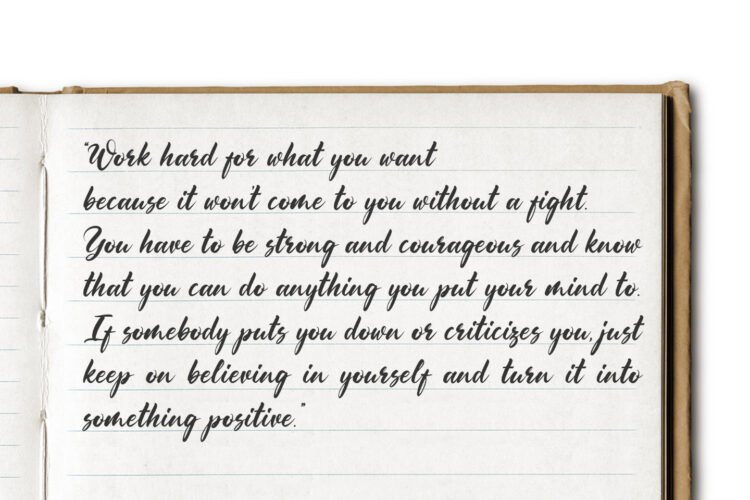 "Work hard for what you want
because it won't come to you without a fight.
You have to be strong and courageous and know
that you can do anything you put your mind to.
If somebody puts you down or criticizes you, just
keep on believing in yourself and turn it into
something positive."